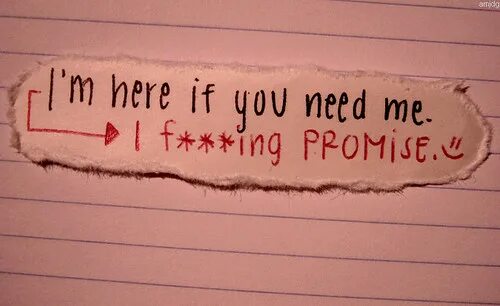 amidg
I'm here if you need me.
I f***ing PROMiSE.